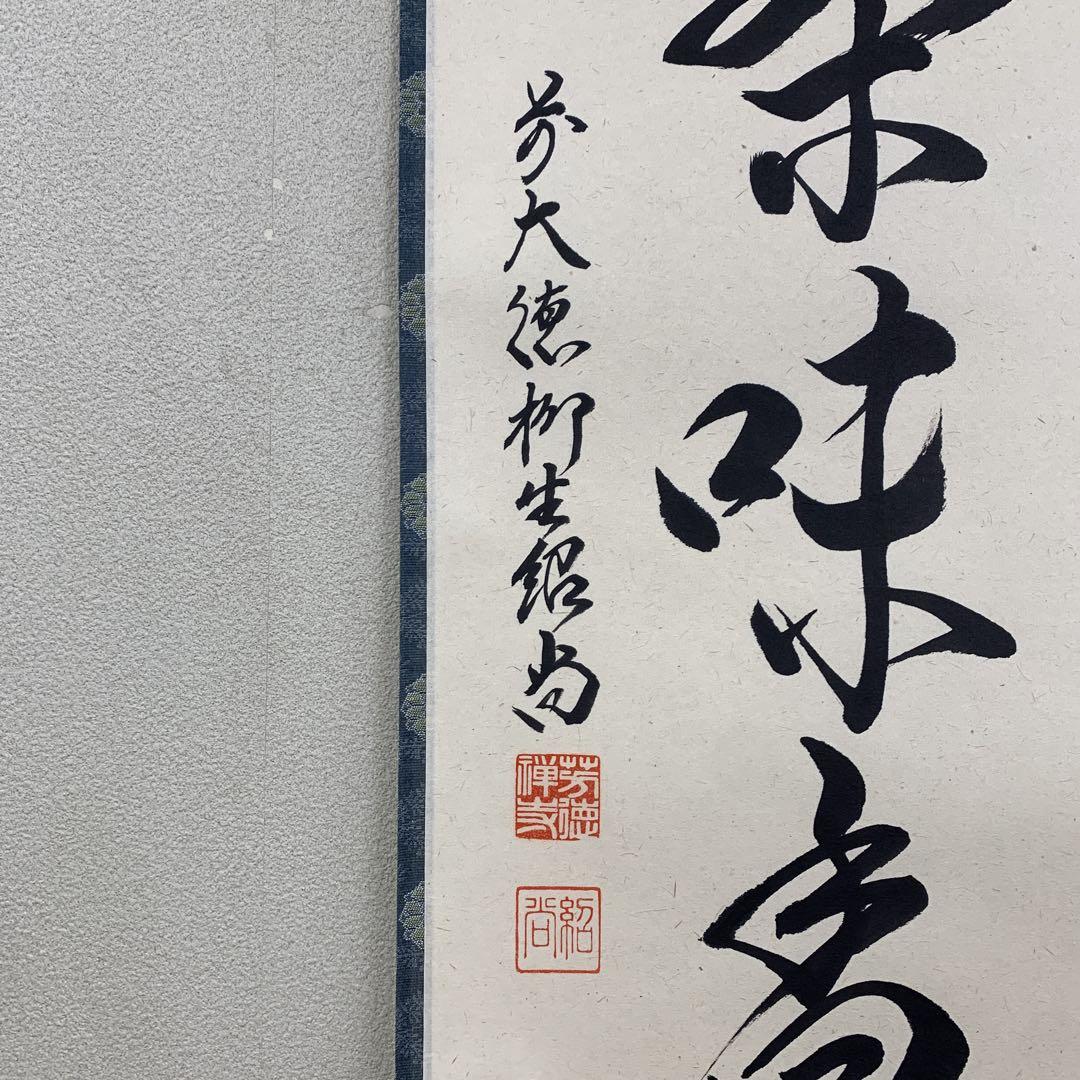 茶味香
前大徳柳生紹尚
芳徳
禅寺
紹尚